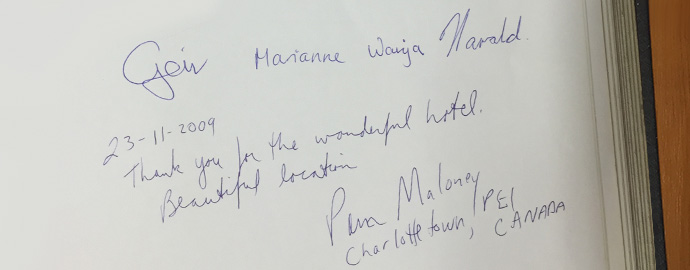 Geir Marianne Wanja Harald.
23-11-2009
Thank you for the wonderful hotel.
Beautiful location
Pam Maloney
Charlottetown, PEI
CANADA